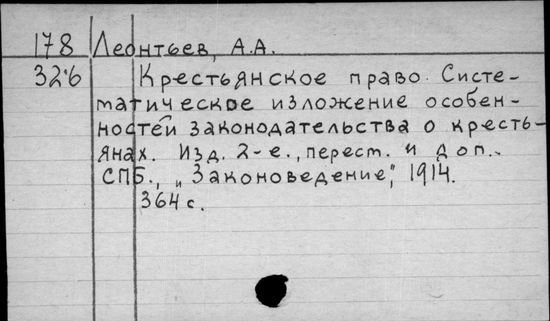 178 Леонтьев, А.А.
326 Крестьянское право. Систе-
матическое изложение особен-
ностей законодательства о кресть-
янах. Изд. 2-е., перест. и доп.
СПБ., „Законоведение", 1914.
364 с.